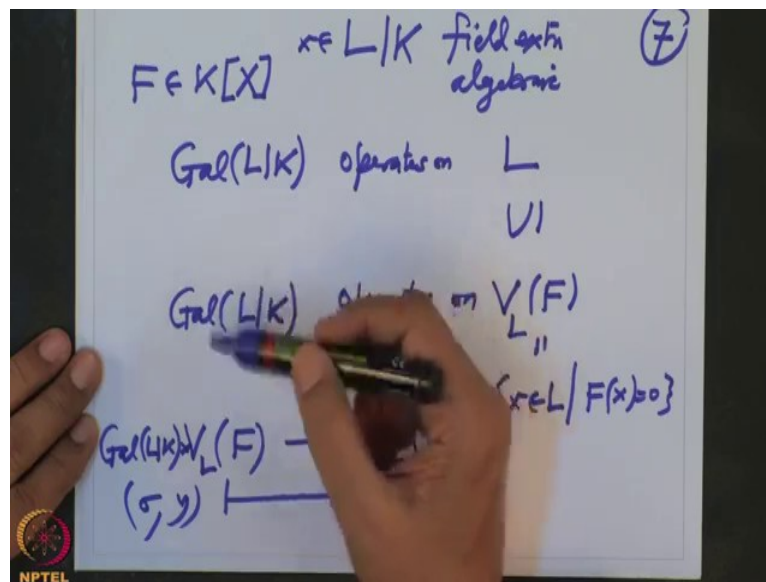 x∈ L|K field extn ⑦
F∈K[X] algebraic
Gal(L|K) operates on L
∪|
Gal(L|K) on V_L(F)
||
{x∈L | F(x)=0}
Gal(L|K)×V_L(F) —
(σ, y) |—
NPTEL